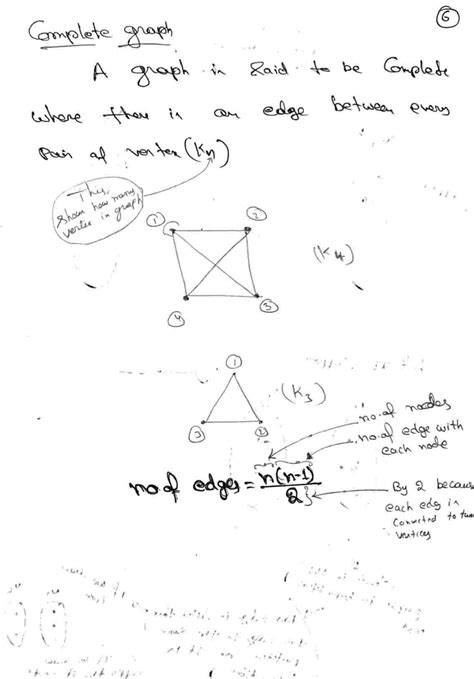 6
Complete graph
A graph is said to be Complete
where there is an edge between every
pair of vertex (Kn)
This
shows how many
vertex in graph
1 2
(K4)
4 3
1
(K3)
3 2
no. of nodes
no. of edge with
each node
no. of edges = n(n-1)
2
By 2 because
each edg is
connected to two
vertices